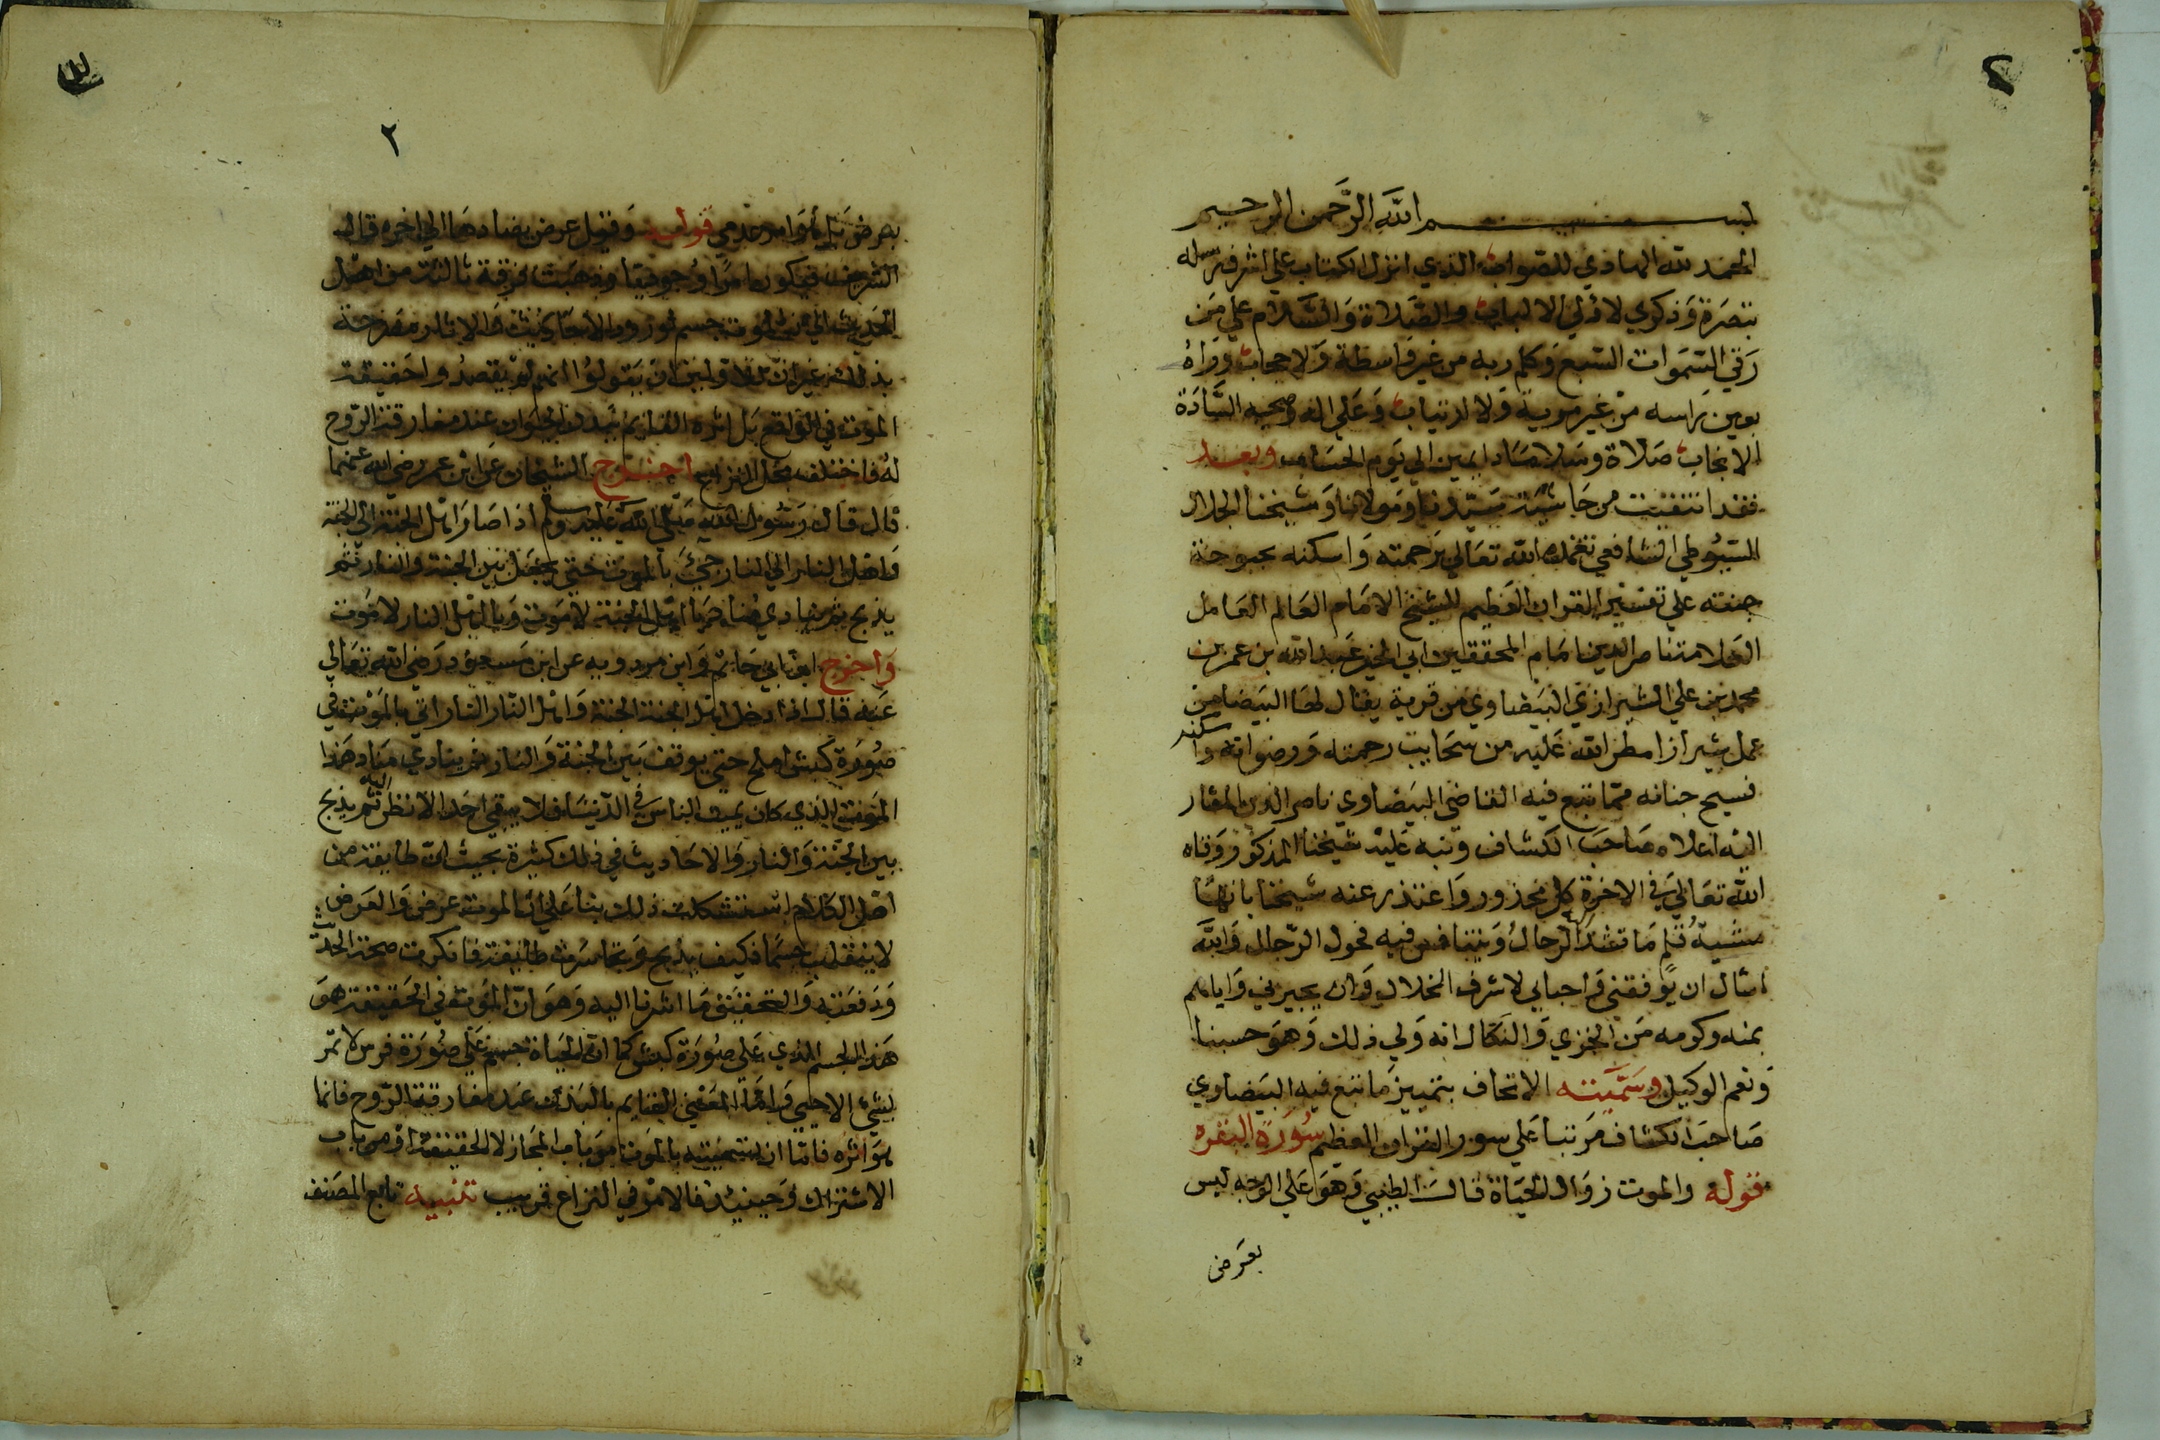 بسم الله الرحمن الرحيم
الحمد لله الهادي للصواب الذي انزل الكتاب علي اشرف رسله
تبصرة وذكري لاولي الالباب والصلاة والسلام علي من
رقي السموات السبع وكلم ربه من غير واسطة ولا حجاب وراه
بعين راسه من غير مرية ولا ارتياب وعلي اله وصحبه السادة
الانجاب صلاة وسلاما دايمين الي يوم الحساب وبعد
فقد انتقيت من حاشية سيدنا ومولانا وشيخنا الجلال
السيوطي الشافعي تغمده الله تعالي برحمته واسكنه بحبوحة
جنته علي تفسير القران العظيم للشيخ الامام العالم العامل
العلامة ناصر الدين امام المحققين ابي الخير عبد الله بن عمر بن
محمد بن علي الشيرازي البيضاوي من قرية يقال لها البيضا من
عمل شيراز امطر الله عليه من سحايب رحمته ورضوانه واسكنه
فسيح جنانه مما تبع فيه القاضي البيضاوي ناصر الدين المشار
اليه اعلاه صاحب الكشاف ونبه عليه شيخنا المذكور وقاه
الله تعالي في الاخرة كل محذور واعتذر عنه شيخنا بانها
تشد اليه الرحال ويتنافس فيه فحول الرجال والله
اسال ان يوفقني واحبابي لاشرف الخلال وان يجيرني واياهم
بمنه وكرمه من الخزي والنكال انه ولي ذلك وهو حسبنا
ونعم الوكيل وسميته الاتحاف بتمييز ما تبع فيه البيضاوي
صاحب الكشاف مرتبا علي سور القران العظيم سورة البقره
قوله والموت زوال الحياة قال الطيبي وهو علي الوجه ليس
بعرض
٢
بعرض بل هو امر عدمي قوله وقيل عرض يضادها الي اخره قال
الشرح فيكون امرا وجوديا وذهبت فرقة ثالثة من اهل
الحديث الي ان الموت جسم لورود الاحاديث والاثار مصرحة
بذلك غير ان للاولين ان يقولوا انهم لم يقصدوا حقيقة
الموت في الواقع بل اثره القايم ببدن الحيوان عند مفارقة الروح
له فاختلف محل النزاع اخرج الشيخان عن ابن عمر رضي الله عنهما
قال قال رسول الله صلي الله عليه وسلم اذا صار اهل الجنة الي الجنة
واهل النار الي النار جيء بالموت حتي يجعل بين الجنة والنار ثم
يذبح ثم ينادي مناد يا اهل الجنة لا موت ويا اهل النار لا موت
واخرج ابن ابي حاتم وابن مردويه عن ابن مسعود رضي الله تعالي
عنه قال اذا دخل اهل الجنة الجنة واهل النار النار اتي بالموت في
صورة كبش املح حتي يوقف بين الجنة والنار ثم ينادي مناد هذا
الموت الذي كان يميت الناس في الدنيا فلا يبقي احد الا نظر اليه ثم يذبح
بين الجنة والنار والاحاديث في ذلك كثيرة بحيث ان طايفة من
اهل الكلام استشكلت ذلك بنا علي ان الموت عرض والعرض
لا ينقلب جسما فكيف يذبح وتجاسرت طايفة فانكرت صحة الحديث
ودفعته والتحقيق ما اشرنا اليه وهو ان الموت في الحقيقة هو
هذا الجسم الذي علي صورة كبش كما ان الحياة جسم علي صورة فرس لا تمر
بشيء الا حيي واما المعني القايم بالبدن عند مفارقة الروح فانما
هو اثره فاما ان تسميته بالموت من باب المجاز لا الحقيقة او من باب
الاشتراك وحينيذ فالامر في النزاع قريب تنبيه تابع المصنف